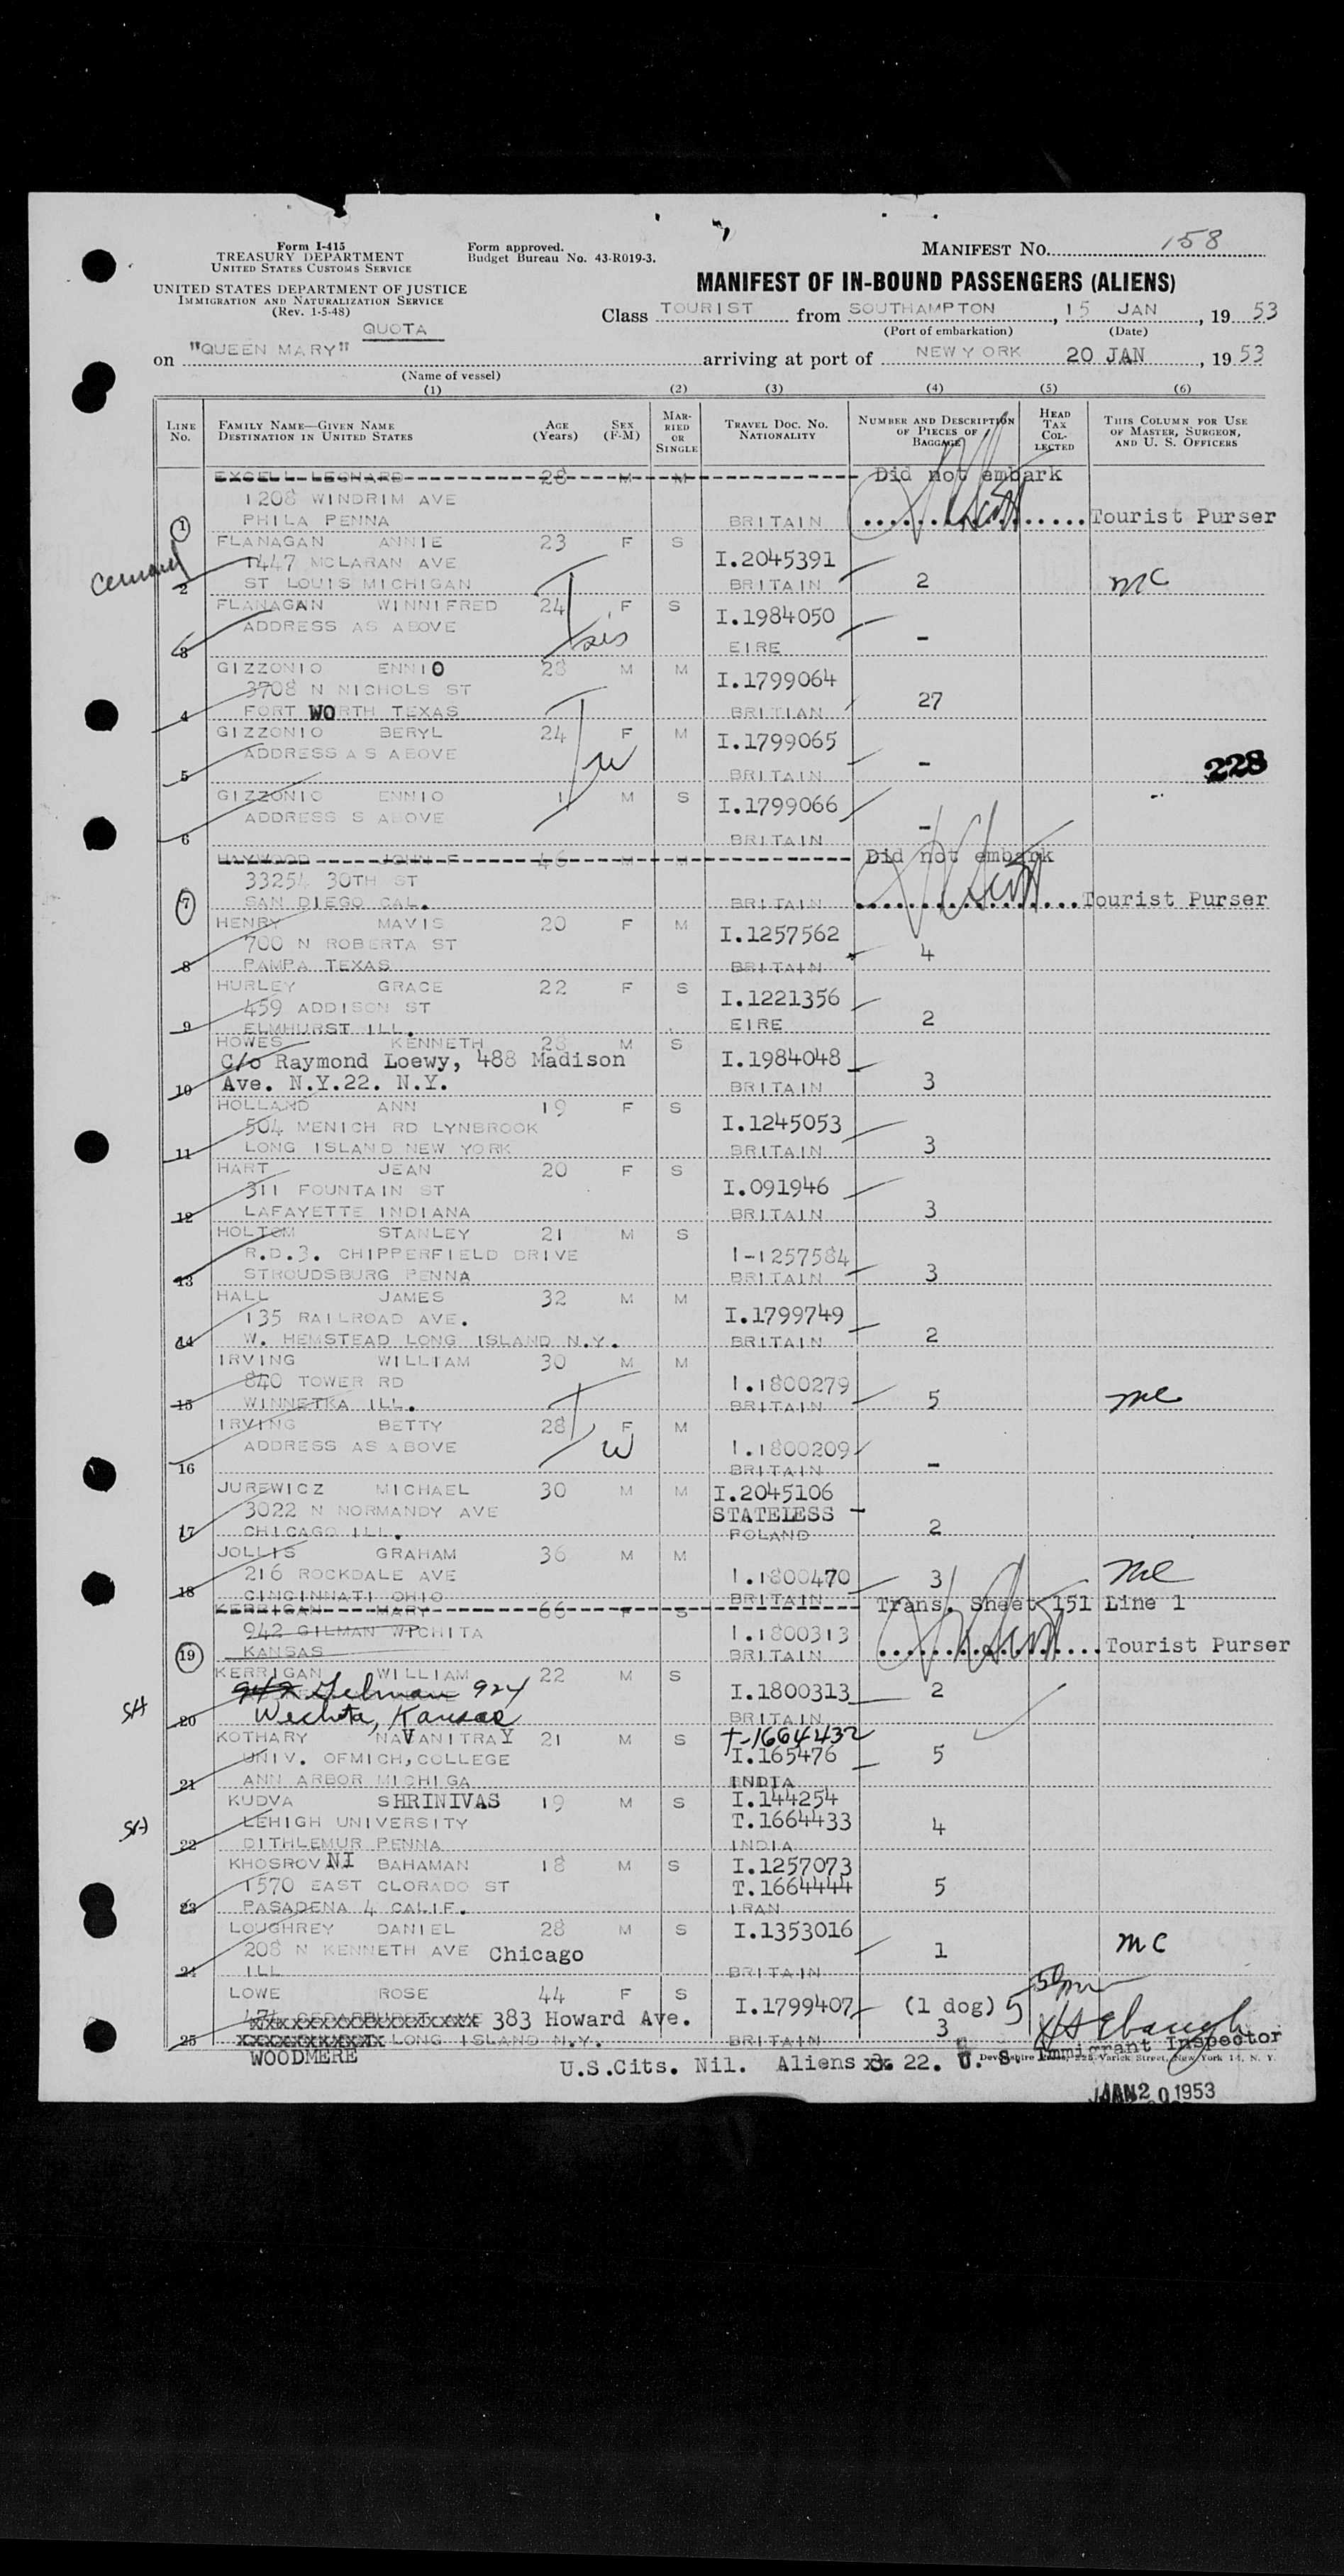 Form I-415
TREASURY DEPARTMENT
UNITED STATES CUSTOMS SERVICE
UNITED STATES DEPARTMENT OF JUSTICE
IMMIGRATION AND NATURALIZATION SERVICE
(Rev. 1-5-48)
Form approved.
Budget Bureau No. 43-R019-3.
MANIFEST No. 158
MANIFEST OF IN-BOUND PASSENGERS (ALIENS)
Class TOURIST from SOUTHAMPTON, 15 JAN, 1953
(Port of embarkation) (Date)
QUOTA
on "QUEEN MARY" arriving at port of NEW YORK 20 JAN, 1953
(Name of vessel)
(1) (2) (3) (4) (5) (6)
LINE No.
FAMILY NAME—GIVEN NAME
DESTINATION IN UNITED STATES
AGE (Years)
SEX (F-M)
MARRIED OR SINGLE
TRAVEL DOC. NO.
NATIONALITY
NUMBER AND DESCRIPTION OF PIECES OF BAGGAGE
HEAD TAX COLLECTED
THIS COLUMN FOR USE OF MASTER, SURGEON, AND U. S. OFFICERS
EXCELL LEONARD 28 M M Did not embark
1208 WINDRIM AVE
1 PHILA PENNA BRITAIN Tourist Purser
FLANAGAN ANNIE 23 F S
1447 MCLARAN AVE I.2045391
2 ST LOUIS MICHIGAN BRITAIN 2 mc
FLANAGAN WINNIFRED 24 F S
ADDRESS AS ABOVE I.1984050
sis
3 EIRE -
GIZZONIO ENNIO 28 M M
3708 N NICHOLS ST I.1799064
4 FORT WORTH TEXAS BRITIAN 27
GIZZONIO BERYL 24 F M
ADDRESS A S ABOVE I.1799065
w
5 BRITAIN - 228
GIZZONIO ENNIO 1 M S
ADDRESS S ABOVE I.1799066
6 BRITAIN -
HAYWOOD JOHN F 46 M M Did not embark
33254 30TH ST
7 SAN DIEGO CAL. BRITAIN Tourist Purser
HENRY MAVIS 20 F M
700 N ROBERTA ST I.1257562
8 PAMPA TEXAS BRITAIN 4
HURLEY GRACE 22 F S
459 ADDISON ST I.1221356
9 ELMHURST ILL. EIRE 2
HOWES KENNETH 28 M S
C/o Raymond Loewy, 488 Madison I.1984048
10 Ave. N.Y.22. N.Y. BRITAIN 3
HOLLAND ANN 19 F S
504 MENICH RD LYNBROOK I.1245053
11 LONG ISLAND NEW YORK BRITAIN 3
HART JEAN 20 F S
311 FOUNTAIN ST I.091946
12 LAFAYETTE INDIANA BRITAIN 3
HOLTOM STANLEY 21 M S
R.D.3. CHIPPERFIELD DRIVE I-1257584
13 STROUDSBURG PENNA BRITAIN 3
HALL JAMES 32 M M
135 RAILROAD AVE. I.1799749
14 W. HEMSTEAD LONG ISLAND N.Y. BRITAIN 2
IRVING WILLIAM 30 M M
840 TOWER RD I.1800279
15 WINNETKA ILL. BRITAIN 5 mc
IRVING BETTY 28 F M
ADDRESS AS ABOVE w I.1800209
16 BRITAIN -
JUREWICZ MICHAEL 30 M M I.2045106
3022 N NORMANDY AVE STATELESS
17 CHICAGO ILL. POLAND 2
JOLLIS GRAHAM 36 M M
216 ROCKDALE AVE I.1800470 3 mc
18 CINCINNATI OHIO BRITAIN
KERRIGAN MARY 66 F S Trans. Sheet 151 Line 1
942 GILMAN WPCHITA I.1800313
19 KANSAS BRITAIN Tourist Purser
KERRIGAN WILLIAM 22 M S
942 Gelman 924 I.1800313 2
SH 20 Wechita, Kansas BRITAIN
KOTHARY NAVANITRAY 21 M S T-1664432
UNIV. OFMICH,COLLEGE I.165476 5
21 ANN ARBOR MICHIGA INDIA
KUDVA SHRINIVAS 19 M S I.144254
LEHIGH UNIVERSITY T.1664433 4
SH 22 DITHLEMUR PENNA INDIA
KHOSROVANI BAHAMAN 18 M S I.1257073
1570 EAST CLORADO ST T.1664444 5
23 PASADENA 4 CALIF. IRAN
LOUGHREY DANIEL 28 M S I.1353016
208 N KENNETH AVE Chicago 1 mc
24 ILL BRITAIN
LOWE ROSE 44 F S I.1799407 (1 dog) 5
383 Howard Ave. 3
25 LONG ISLAND N.Y. BRITAIN
WOODMERE
U.S.Cits. Nil. Aliens 22. U. S. Immigrant Inspector
Varick Street, New York 14, N. Y.
JAN 20 1953